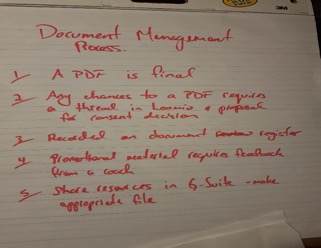 Document Management
Process.
1 A PDF is final
2 Any changes to a PDF requires
a thread in Loomio & proposal
for consent decision
3 Recorded on document register
4 Promotional material requires feedback
from a coach
5 Share resources in G-Suite - make
appropriate file
3M